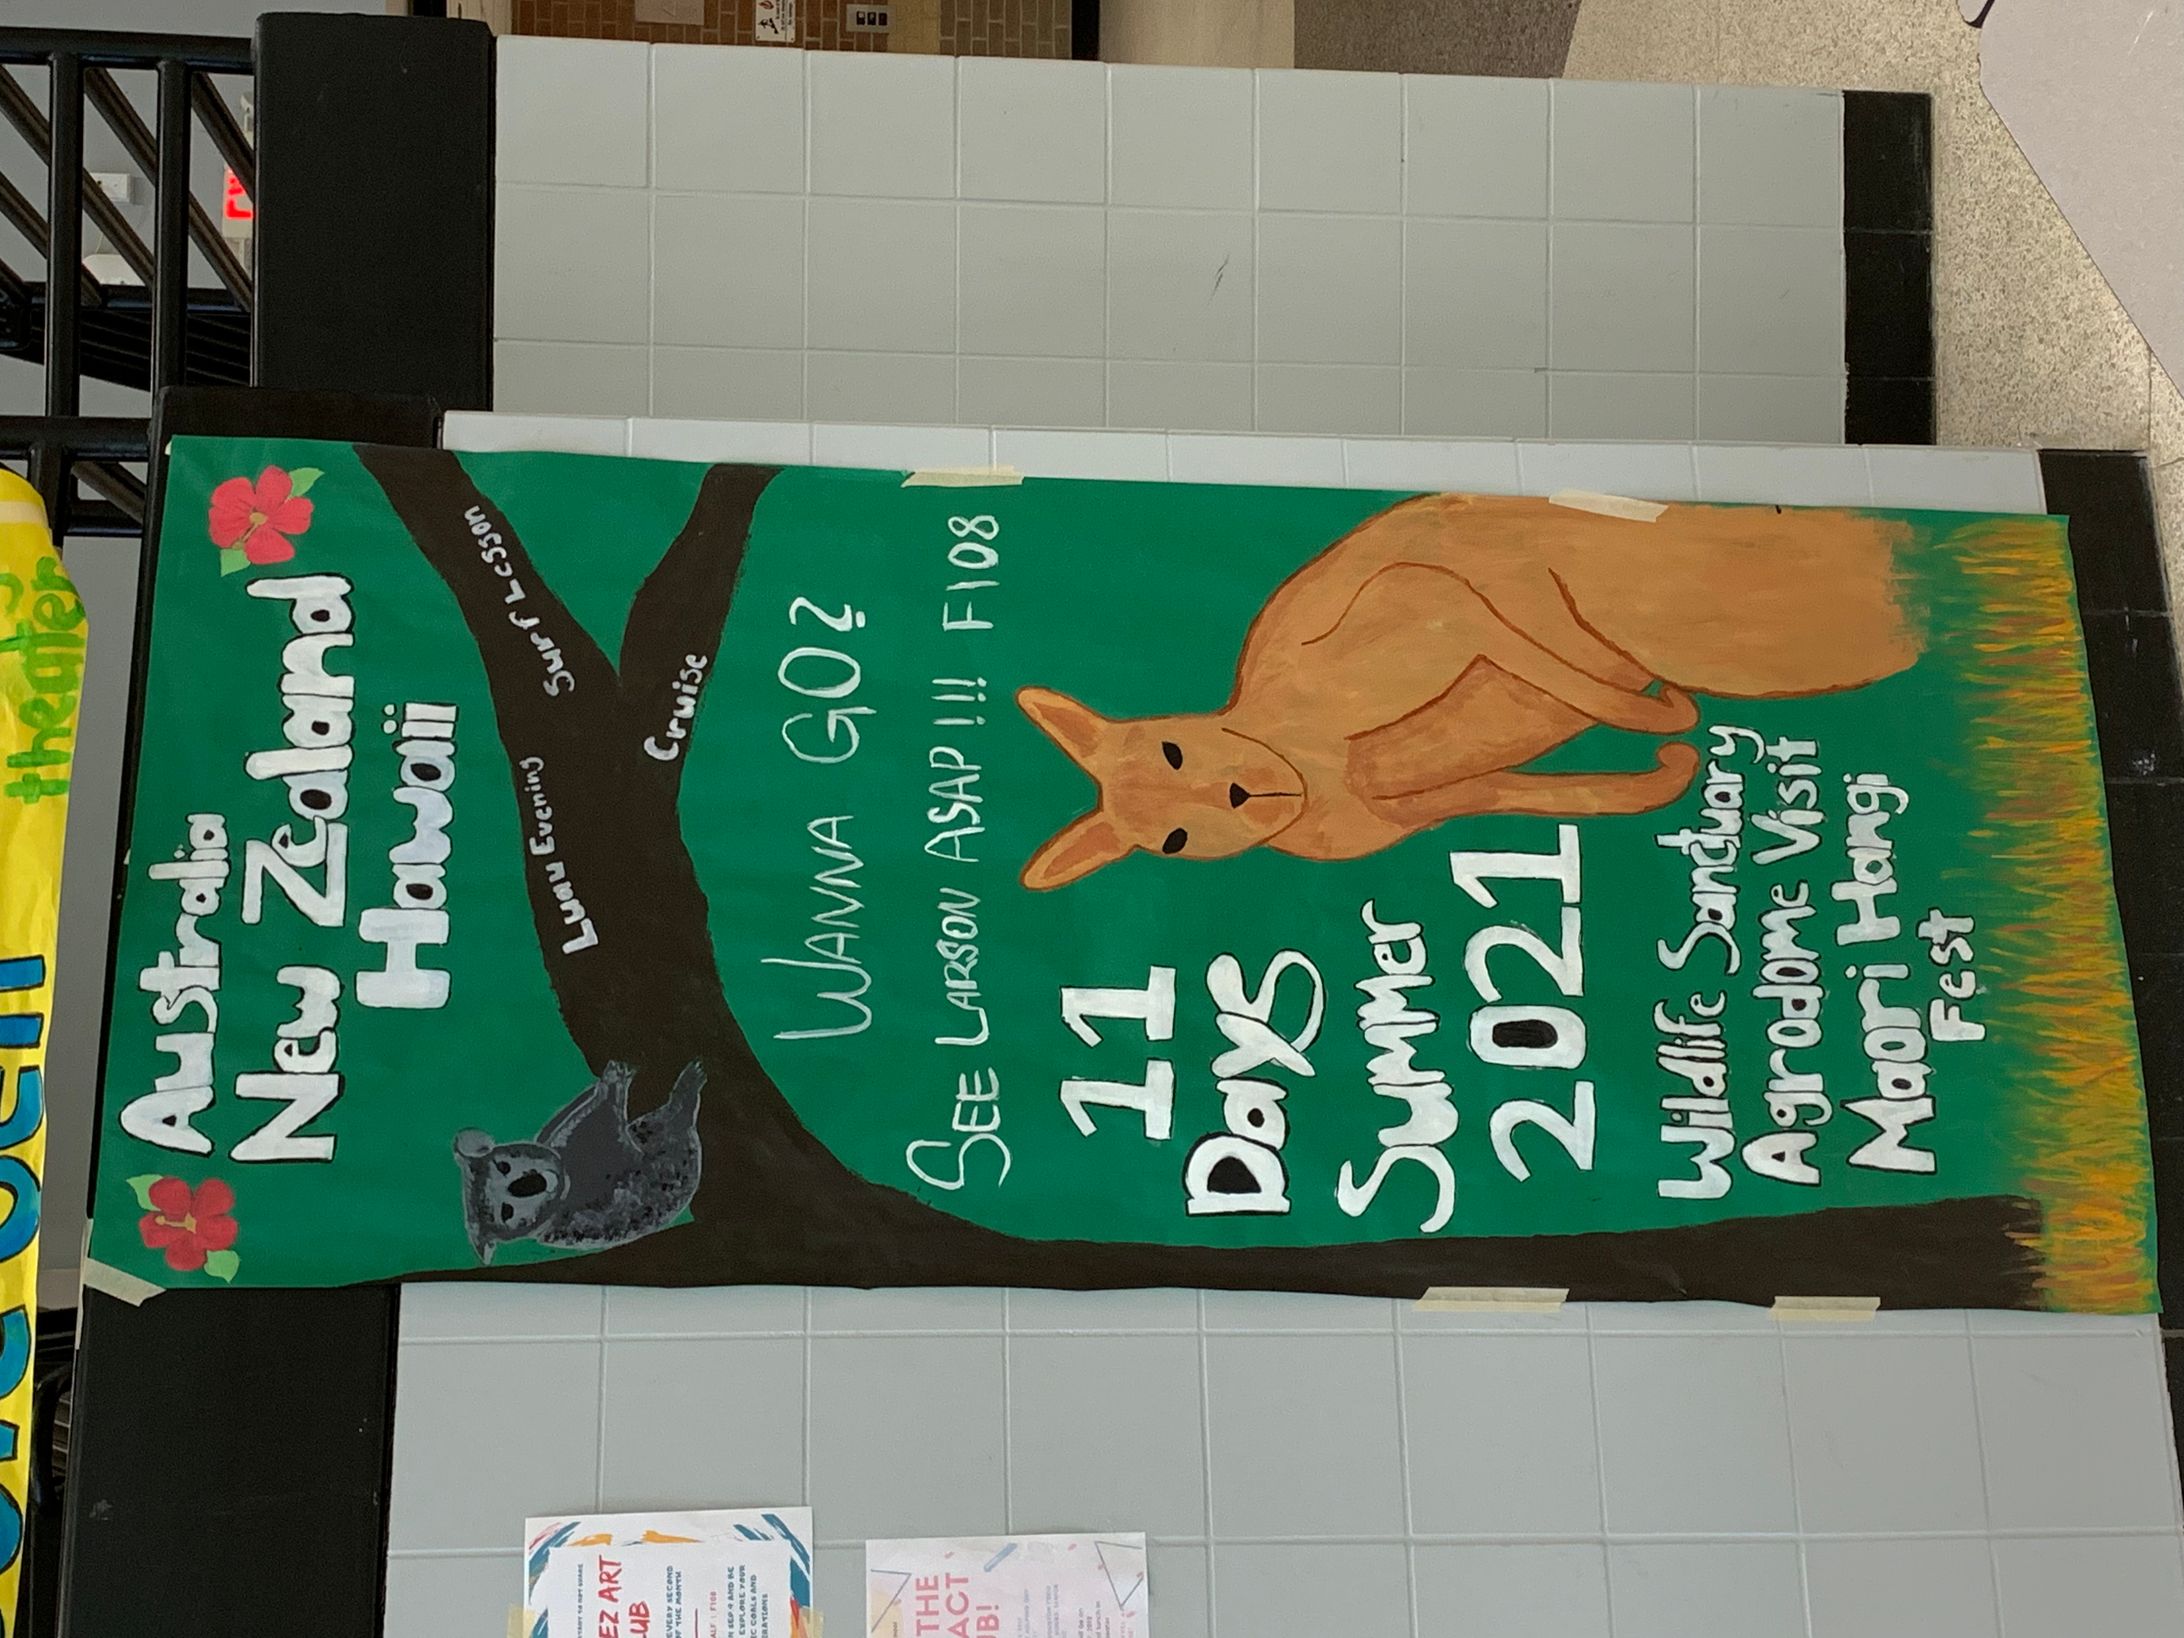 Australia
New Zealand
Hawaii
Surf Lesson
Luau Evening
Cruise
WANNA GO?
SEE LARSON ASAP!!! F108
11
Days
Summer
2021
Wildlife Sanctuary
Agrodome Visit
Maori Hangi
Fest
theater
EZ ART
UB
EVERY SECOND
OF THE MONTH
F108
EXPLORE YOUR
GOALS AND
THE
ACT
UB!